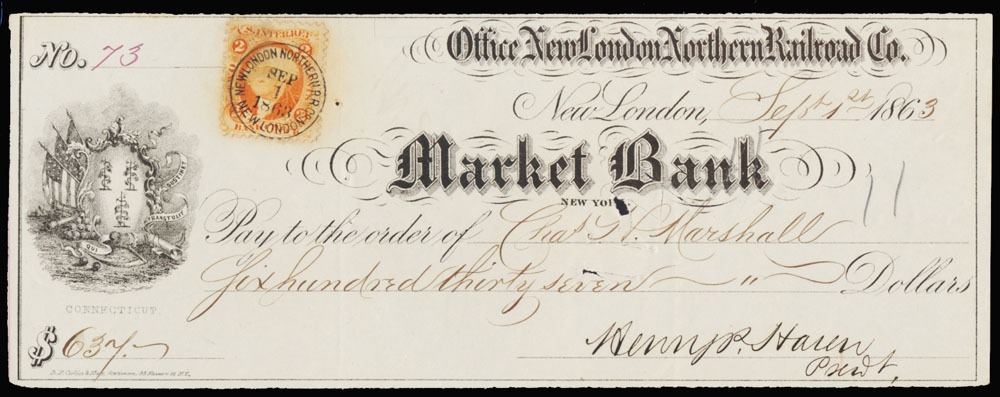 No. 73
U.S. INTER. REV.
2 2
NEW LONDON NORTHERN R.R.
SEP
1
1863
NEW LONDON
BAN
Office New London Northern Railroad Co.
New London, Sept 1st 1863
Market Bank
NEW YO
11
Pay to the order of Chas H. Marshall
Six hundred thirty seven " Dollars
QUI TRANSTULIT SUSTINET
CONNECTICUT.
$ 637.
Henry P. Haven
Presdt.